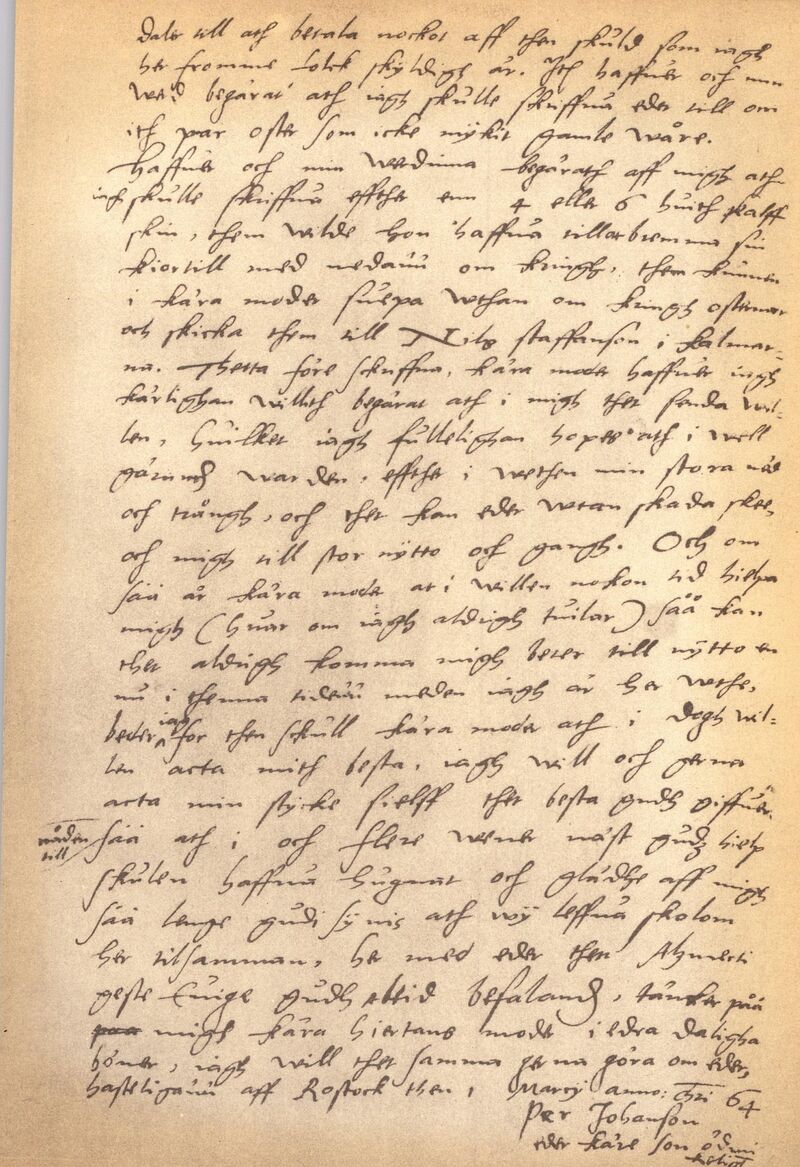 daler till ath betala nockot aff then skuld som iagh
her fromme folck skyldigh är. Ith haffuer och min
werd begärat ath iagh skulle skriffua eder till om
ith par oster som icke mykit gamle wåre.
Haffuer och min werdinna begärath aff migh ath
iagh skulle skriffua effther enn 4 eller 6 huith kalff
skin, them wilde hon haffua till att bremma sin
kiortill med nedann om kringh, them kunnen
i kära moder suepa wthan om kringh osterner
och skicka them till Nils staffanson i Kalmar-
na. Thetta före scriffna, kära moder haffuer iagh
kärlighan willith begärat ath i migh thet senda wil-
len, huilket iagh fullelighan hopes ath i well
görandes warden, effther i wethen min stora nöd
och trångh, och thet kan eder wtan skada skee,
och migh till stor nytto och gangh. Och om
såå är kära moder at i willen nokon tid hielpa
migh (huar om iagh aldrigh tuilar) såå kan
thet aldrigh komma migh beter till nytto en
nu i thenna tidenn meden iagh är her wthe,
beder iagh for then schull kära moder ath i dogh wil-
len acta mith besta, iagh will och gerna
acta min stycke sielff thet besta gudh giffuer
nåden till såå ath i och flere wener näst gudz hielp
skulen haffua hugnat och glädhe aff migh
såå lenge gudi synis ath wy leffua skolom
her tilsamman, her med eder then Alzmecti
geste Euige gudh altid befalandes, täncker påå
migh kära hiertans moder i edra daligha
böner, iagh will thet samma gerna göra om eder,
hasteligann aff Rostock then 1 Marcij anno: Chri 64
Per Johanson
eder käre son ödmiukeligst